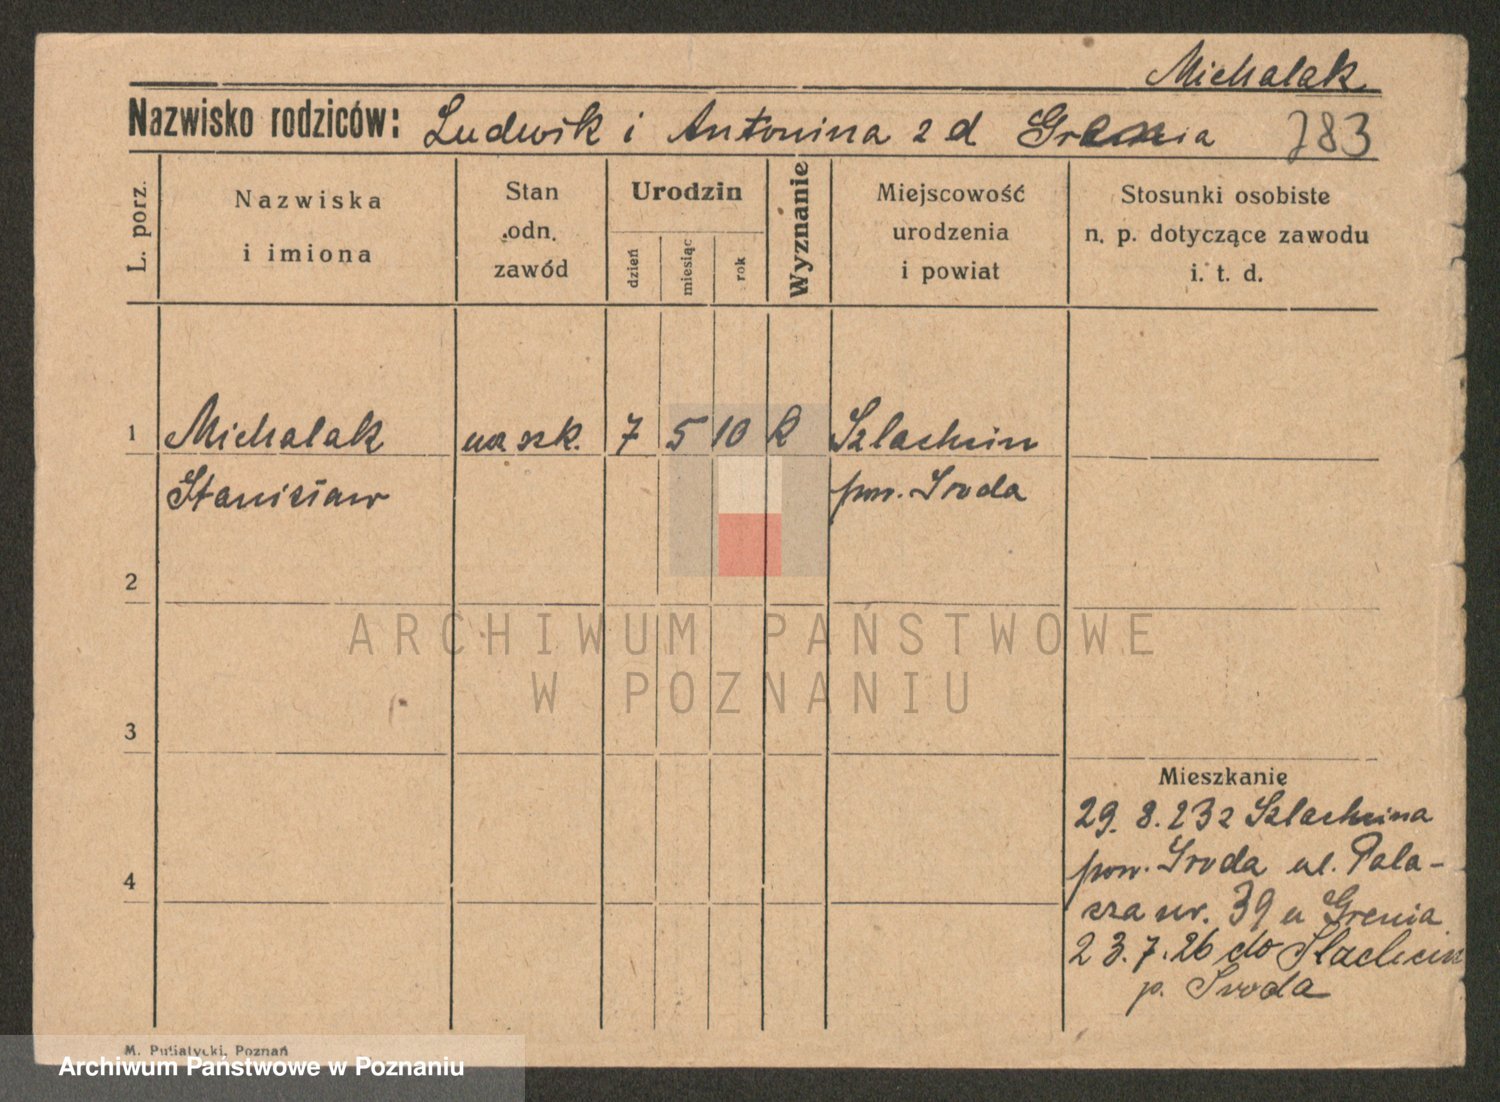 Michalak
Nazwisko rodziców: Ludwik i Antonina z d Grenia 783
L. porz.
Nazwiska
i imiona
Stan
odn.
zawód
Urodzin
dzień
miesiąc
rok
Wyznanie
Miejscowość
urodzenia
i powiat
Stosunki osobiste
n. p. dotyczące zawodu
i. t. d.
1 Michalak ucz szk. 7 5 10 k Szlachcin
Stanisław pow. Sroda
2
3
4
Mieszkanie
29. 8. 23 z Szlachcina
pow. Sroda ul. Pala-
cza nr. 39 u Grenia
23. 7. 26 do Slachcin
p. Sroda
M. Putiatycki, Poznań
ARCHIWUM PAŃSTWOWE
W POZNANIU
Archiwum Państwowe w Poznaniu